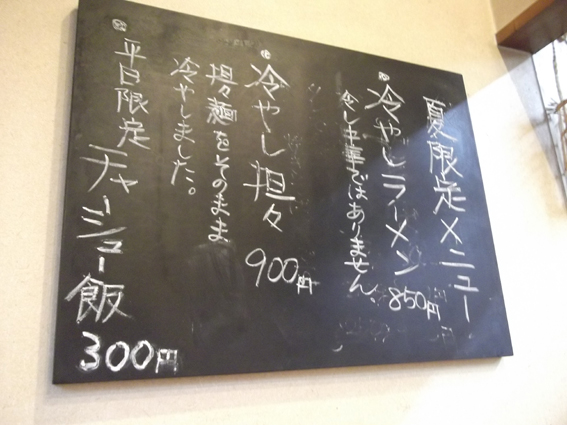 夏限定メニュー
冷やしラーメン 850円
冷し中華ではありません、
冷やし担々 900円
担々麺をそのまま
冷やしました。
平日限定
チャーシュー飯 300円